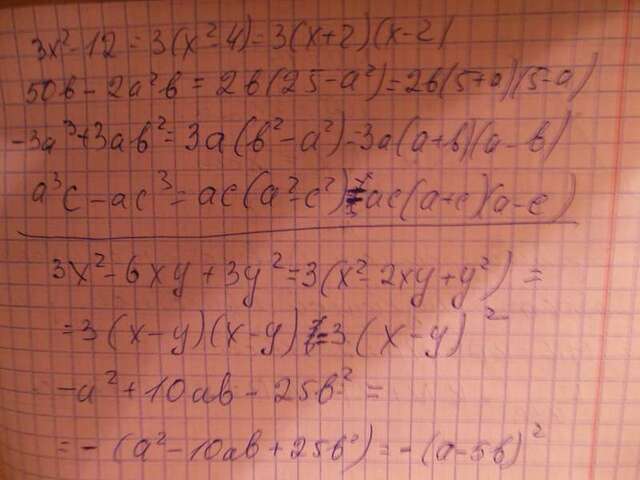 3x² - 12 = 3(x² - 4) = 3(x+2)(x-2)
50b - 2a²b = 2b(25 - a²) = 2b(5+a)(5-a)
-3a³ + 3ab² = 3a(b² - a²) - 3a(a+b)(a-b)
a³c - ac³ = ac(a² - c²) = ac(a+c)(a-c)
3x² - 6xy + 3y² = 3(x² - 2xy + y²) =
= 3(x-y)(x-y) = 3(x-y)²
-a² + 10ab - 25b² =
= -(a² - 10ab + 25b²) = -(a-5b)²